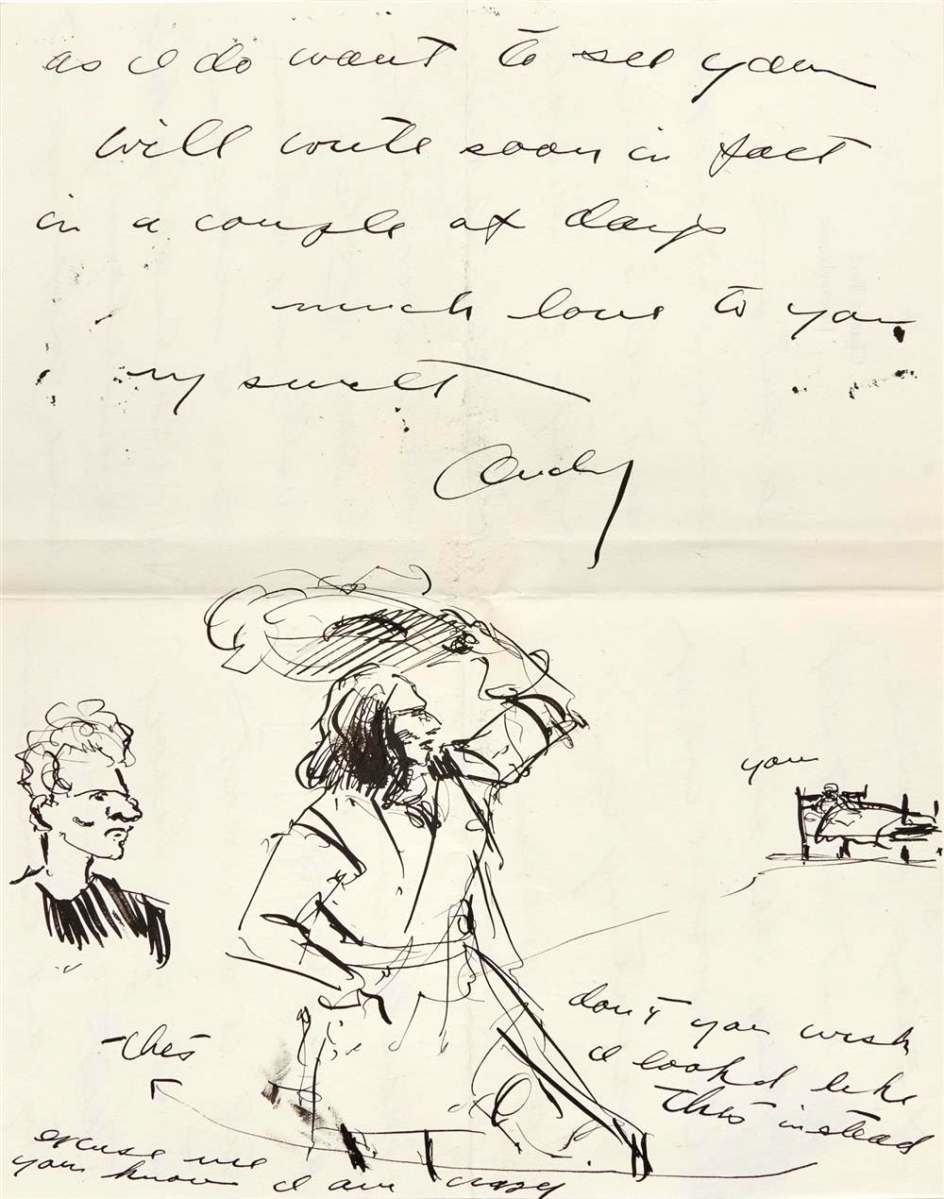 as I do want to see you
will write soon in fact
in a couple of days
much love to you
my sweet
Andy
you
don't you wish
I lookd like
this instead
this
excuse me
you know I am crazy